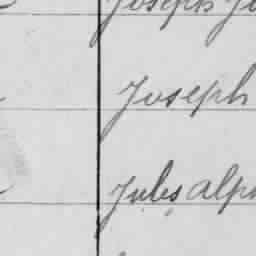 Joseph
Joseph
Jules alph